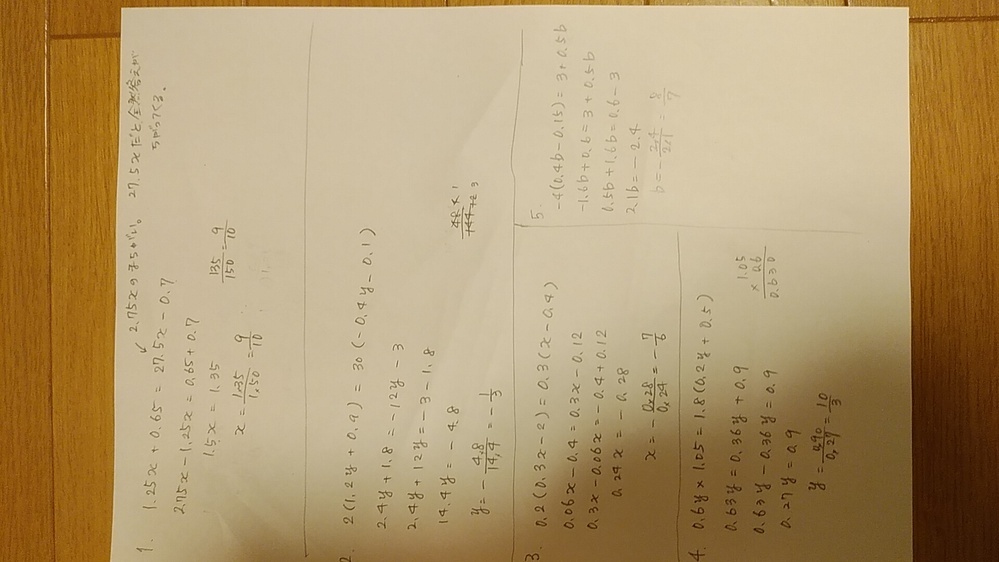 2.75xのまちがい。 27.5xだと全然答えが
ちがってくる。
1. 1.25x + 0.65 = 27.5x - 0.7
2.75x - 1.25x = 0.65 + 0.7
1.5x = 1.35
x = 1.35/1.50 = 9/10
135/150 = 9/10
2. 2(1.2y + 0.9) = 30(-0.4y - 0.1)
2.4y + 1.8 = -12y - 3
2.4y + 12y = -3 - 1.8
14.4y = -4.8
y = - 4.8/14.4 = - 1/3
3. 0.2(0.3x - 2) = 0.3(x - 0.4)
0.06x - 0.4 = 0.3x - 0.12
0.3x - 0.06x = -0.4 + 0.12
0.24x = -0.28
x = - 0.28/0.24 = - 7/6
4. 0.6y × 1.05 = 1.8(0.2y + 0.5)
0.63y = 0.36y + 0.9
0.63y - 0.36y = 0.9
0.27y = 0.9
y = 0.90/0.27 = 10/3
1.05
× 0.6
0.630
5. -4(0.4b - 0.15) = 3 + 0.5b
-1.6b + 0.6 = 3 + 0.5b
0.5b + 1.6b = 0.6 - 3
2.1b = -2.4
b = - 2.4/2.1 = 8/7